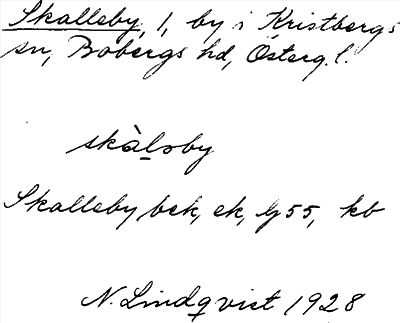 Skalleby, 1, by i Kristbergs
sn, Bobergs hd, Österg. l.
skàlọby
Skalleby bek, ek, G 55, kb
N. Lindqvist 1928